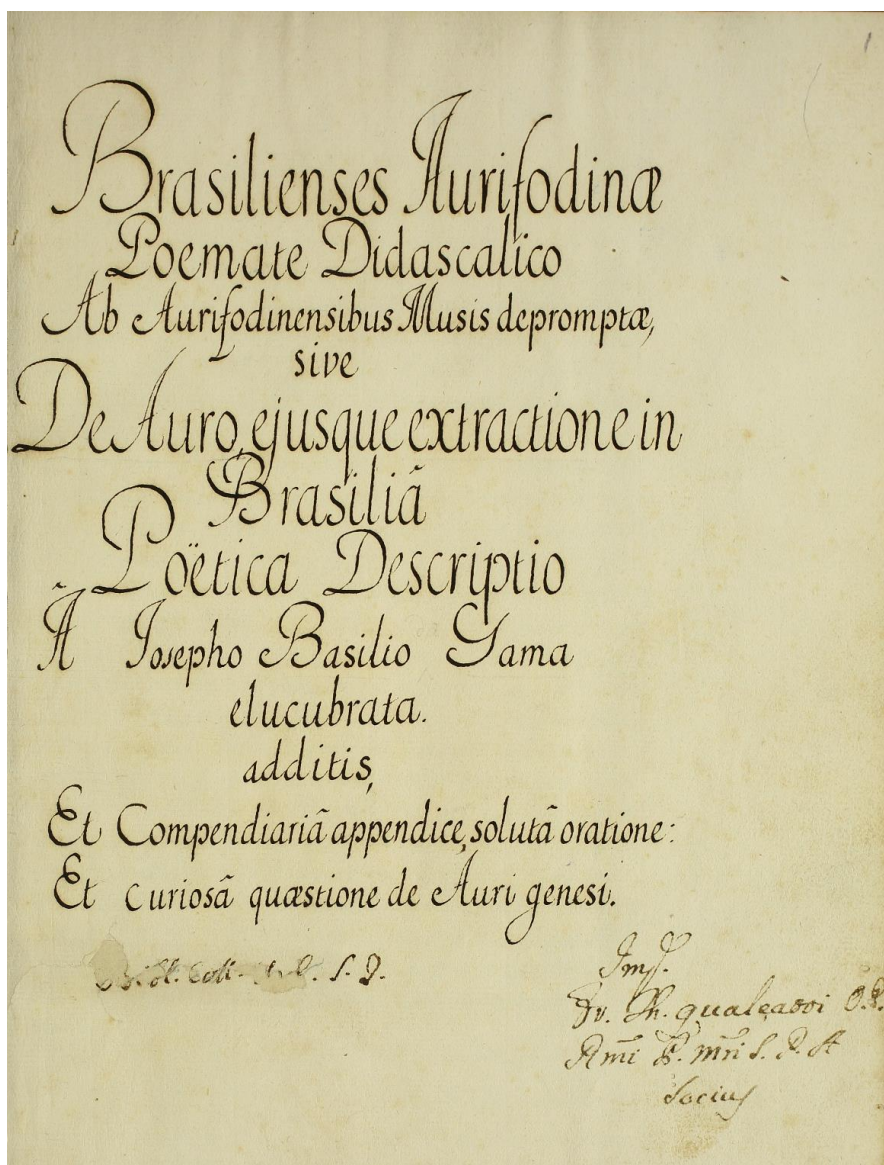 1
Brasilienses Aurifodinæ
Poemate Didascalico
Ab Aurifodinensibus Musis depromptæ,
sive
De Auro, ejusque extractione in
Brasiliã
Poëtica Descriptio
Ã Josepho Basilio Gama
elucubrata.
additis,
Et Compendiariã appendice, solutã oratione:
Et curiosã quæstione de Auri genesi.
S. J.
Fr. Th.
Rm̃i P. Mr̃i S. P. A
Socius